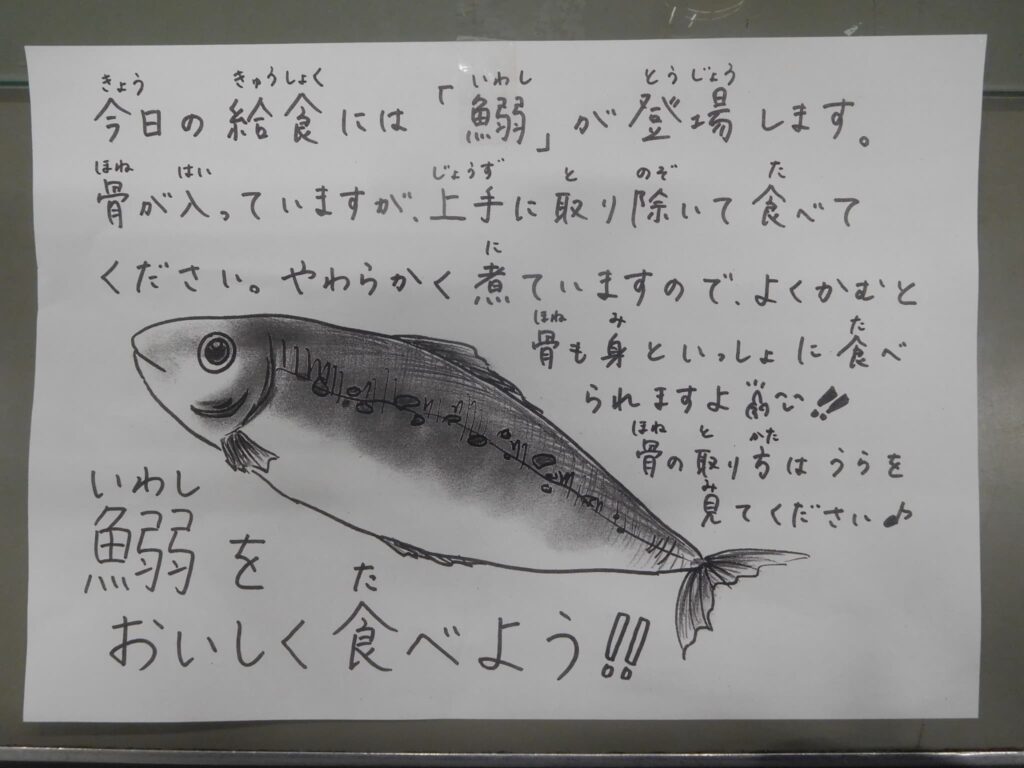 きょう きゅうしょく いわし とうじょう
今日の給食には「鰯」が登場します。
ほね はい じょうず と のぞ た
骨が入っていますが、上手に取り除いて食べて
に
ください。やわらかく煮ていますので、よくかむと
ほね み た
骨も身といっしょに食べ
られますよ!!
ほね と かた
骨の取り方はうらを
み
見てください♪
いわし
鰯を
た
おいしく食べよう!!